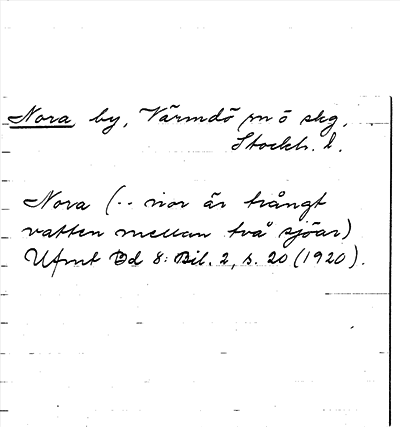 Nora by, Värmdö sn o skg,
Stockh. l.
Nora (.. nor är trångt
vatten mellan två sjöar)
Ufmt Bd 8: Bil. 2, s. 20 (1920).